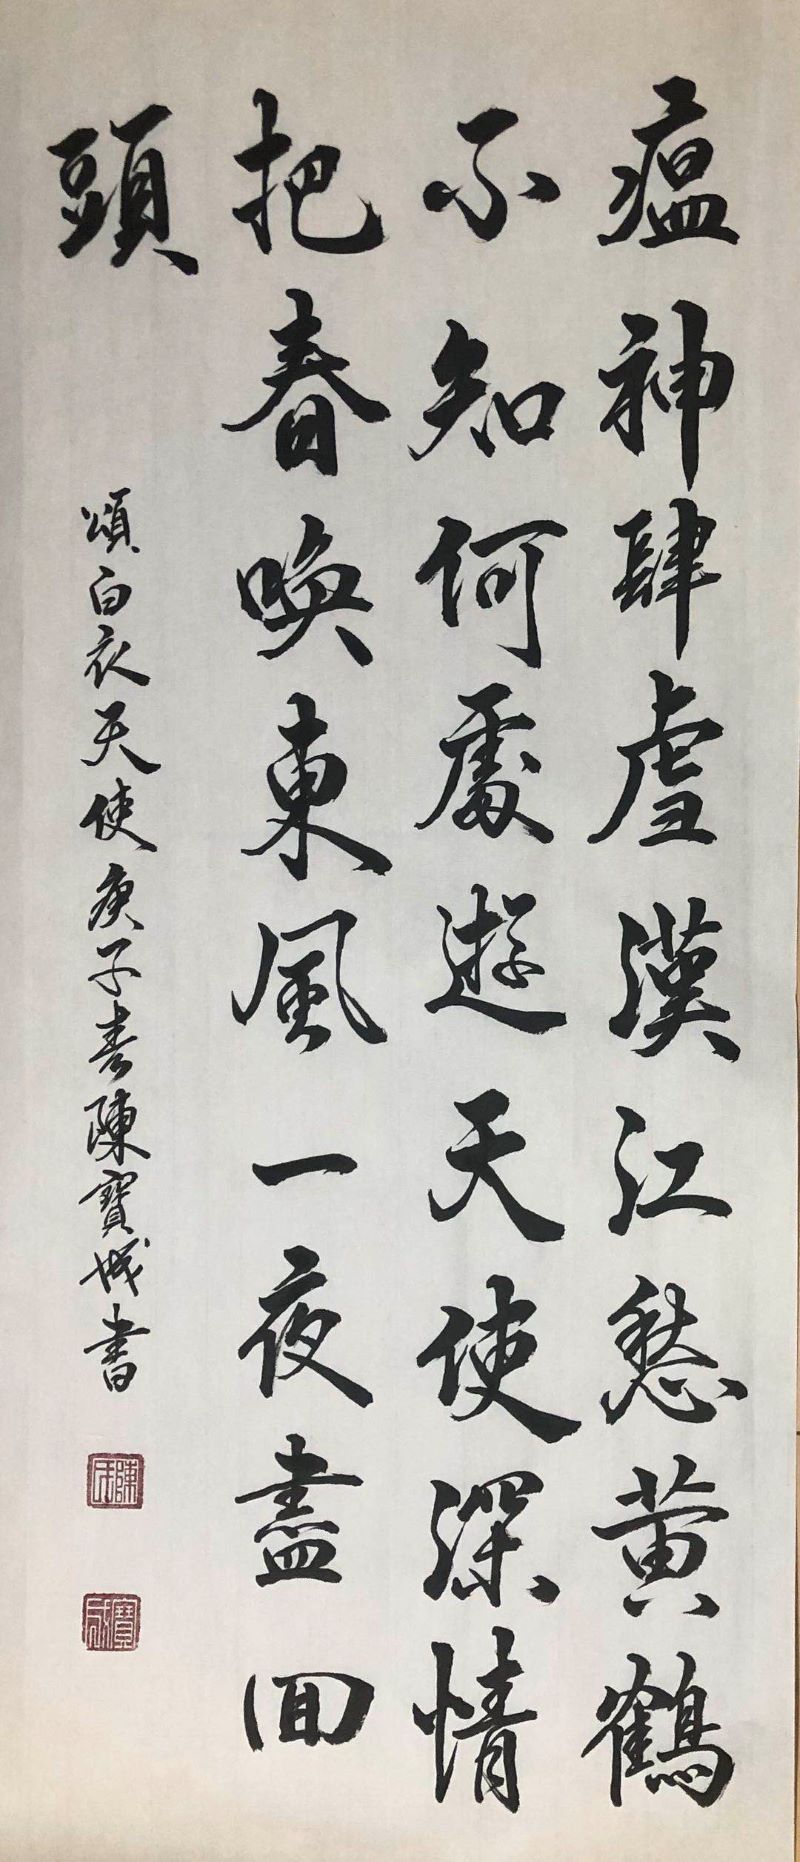 瘟神肆虐漢江愁黄鶴
不知何處遊天使深情
把春喚東風一夜盡回
頭
頌白衣天使庚子春陳寶城書
陳氏
寶成